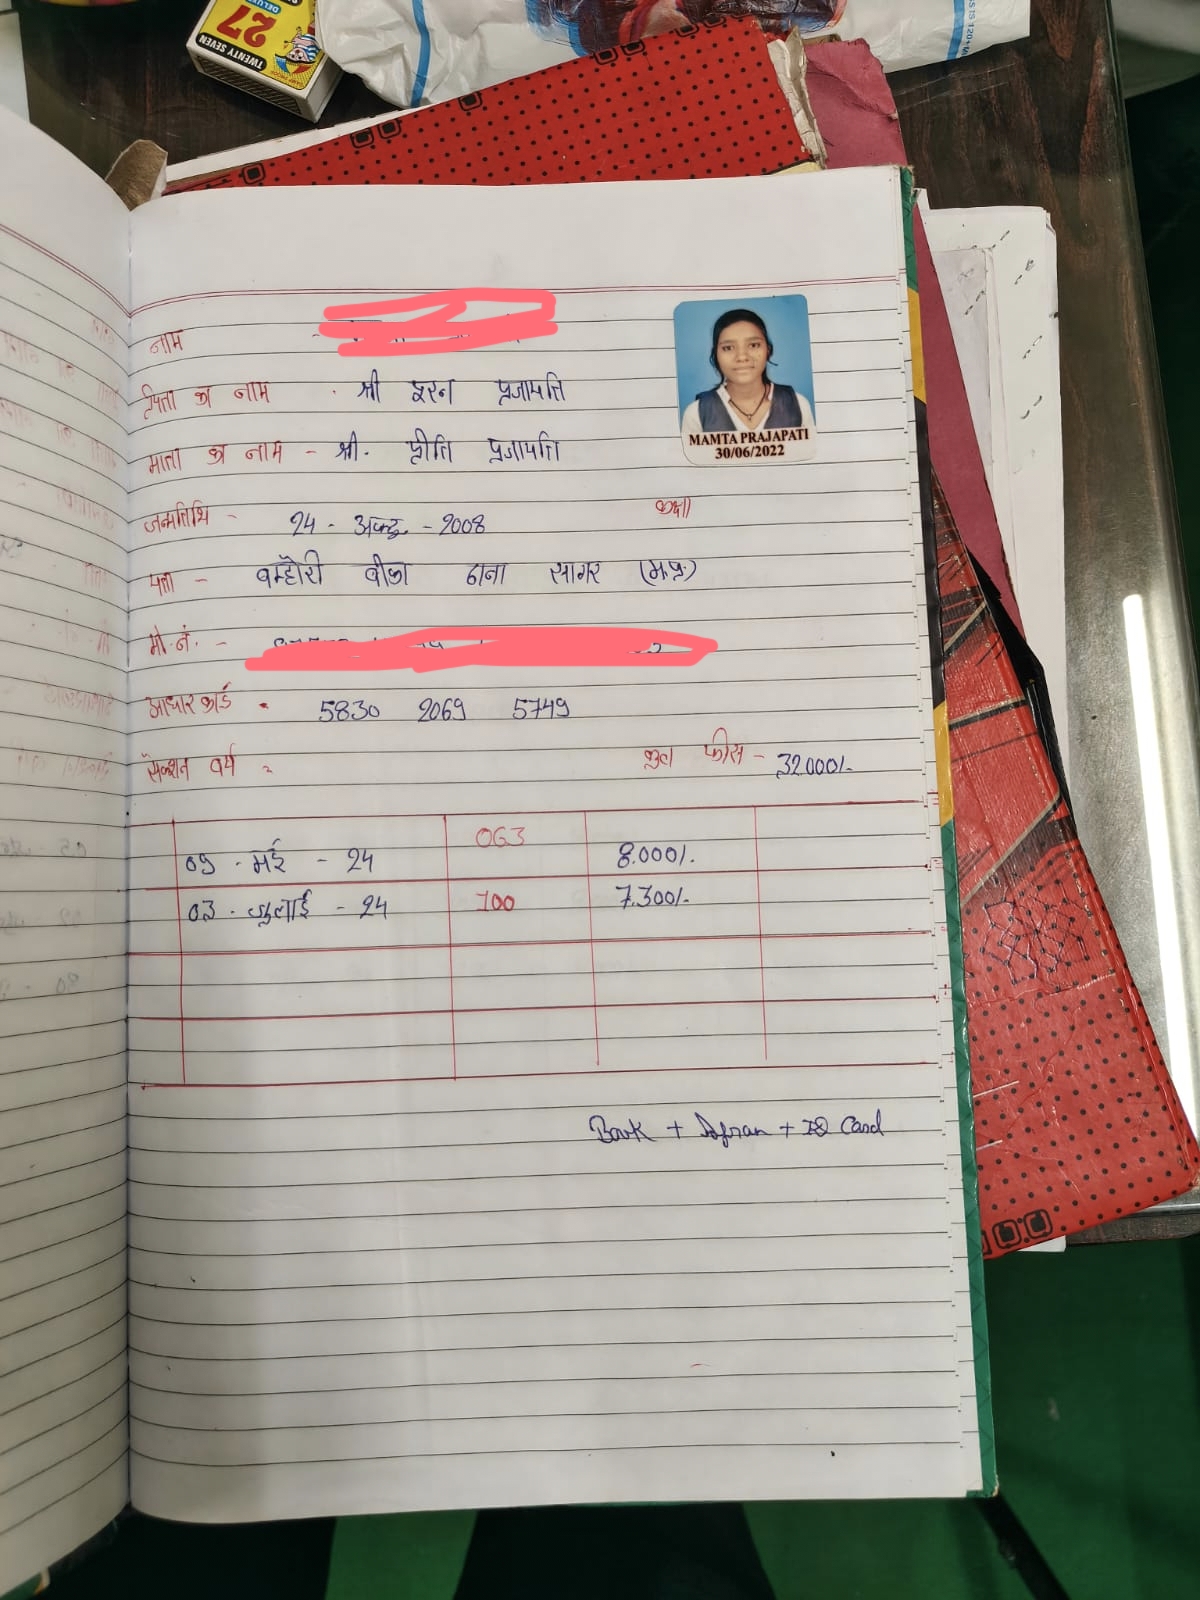 TWENTY SEVEN
27
DELUXE
नाम
पिता का नाम - श्री पूरन प्रजापति
माता का नाम - श्री. प्रीति प्रजापति
MAMTA PRAJAPATI
30/06/2022
जन्मतिथि - 24 - अक्टू - 2008
कक्षा
पता - बम्हौरी बीका ढाना सागर (म.प्र.)
मो. नं. -
आधार कार्ड - 5830 2069 5749
सेक्शन वर्ष -
कुल फीस - 32000/-
09 - मई - 24 063 8000/-
03 - जुलाई - 24 100 7300/-
Book + Afran + ID Card